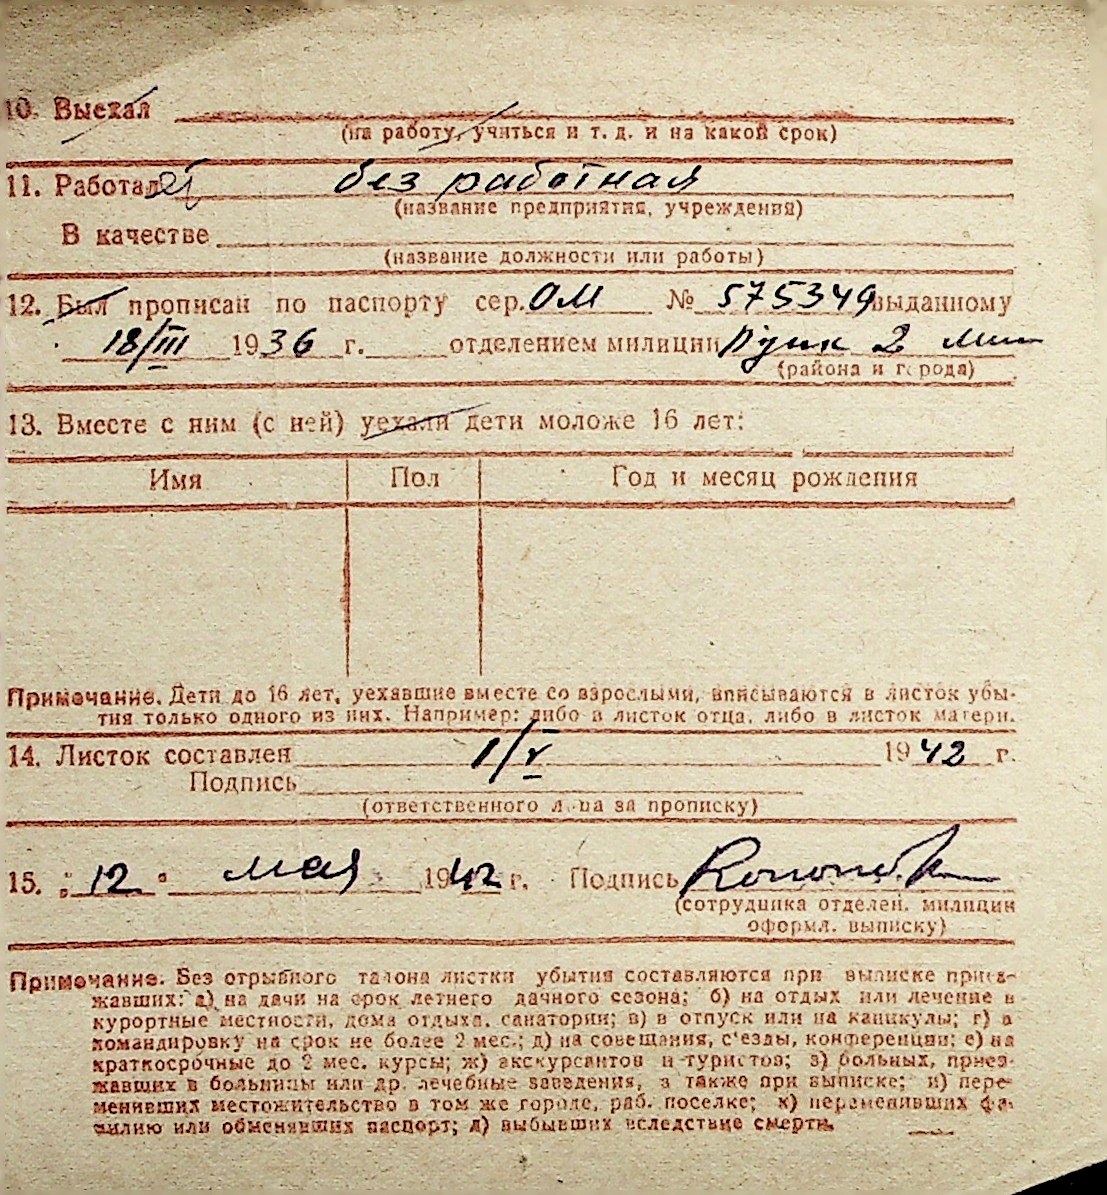 10. Выехал
(на работу, учиться и т. д. и на какой срок)
11. Работал без работная
(название предприятия, учреждения)
В качестве
(название должности или работы)
12. Был прописан по паспорту сер. ОМ № 575349 выданному
18/III 1936 г. отделением милиции 2
(района и города)
13. Вместе с ним (с ней) уехали дети моложе 16 лет:
Имя Пол Год и месяц рождения
Примечание. Дети до 16 лет, уехавшие вместе со взрослыми, вписываются в листок убы-
тия только одного из них. Например: либо в листок отца, либо в листок матери.
14. Листок составлен 1/V 1942 г.
Подпись
(ответственного лица за прописку)
15. „12“ мая 1942 г. Подпись
(сотрудника отделен. милиции
оформл. выписку)
Примечание. Без отрывного талона листки убытия составляются при выписке приез-
жавших: а) на дачи на срок летнего дачного сезона; б) на отдых или лечение в
курортные местности, дома отдыха, санатории; в) в отпуск или на каникулы; г) в
командировку на срок не более 2 мес.; д) на совещания, с'езды, конференции; е) на
краткосрочные до 2 мес. курсы; ж) экскурсантов и туристов; з) больных, приез-
жавших в больницы или др. лечебные заведения, а также при выписке; и) пере-
менивших местожительство в том же городе, раб. поселке; к) переменивших фа-
милию или обменявших паспорт; л) выбывших вследствие смерти.